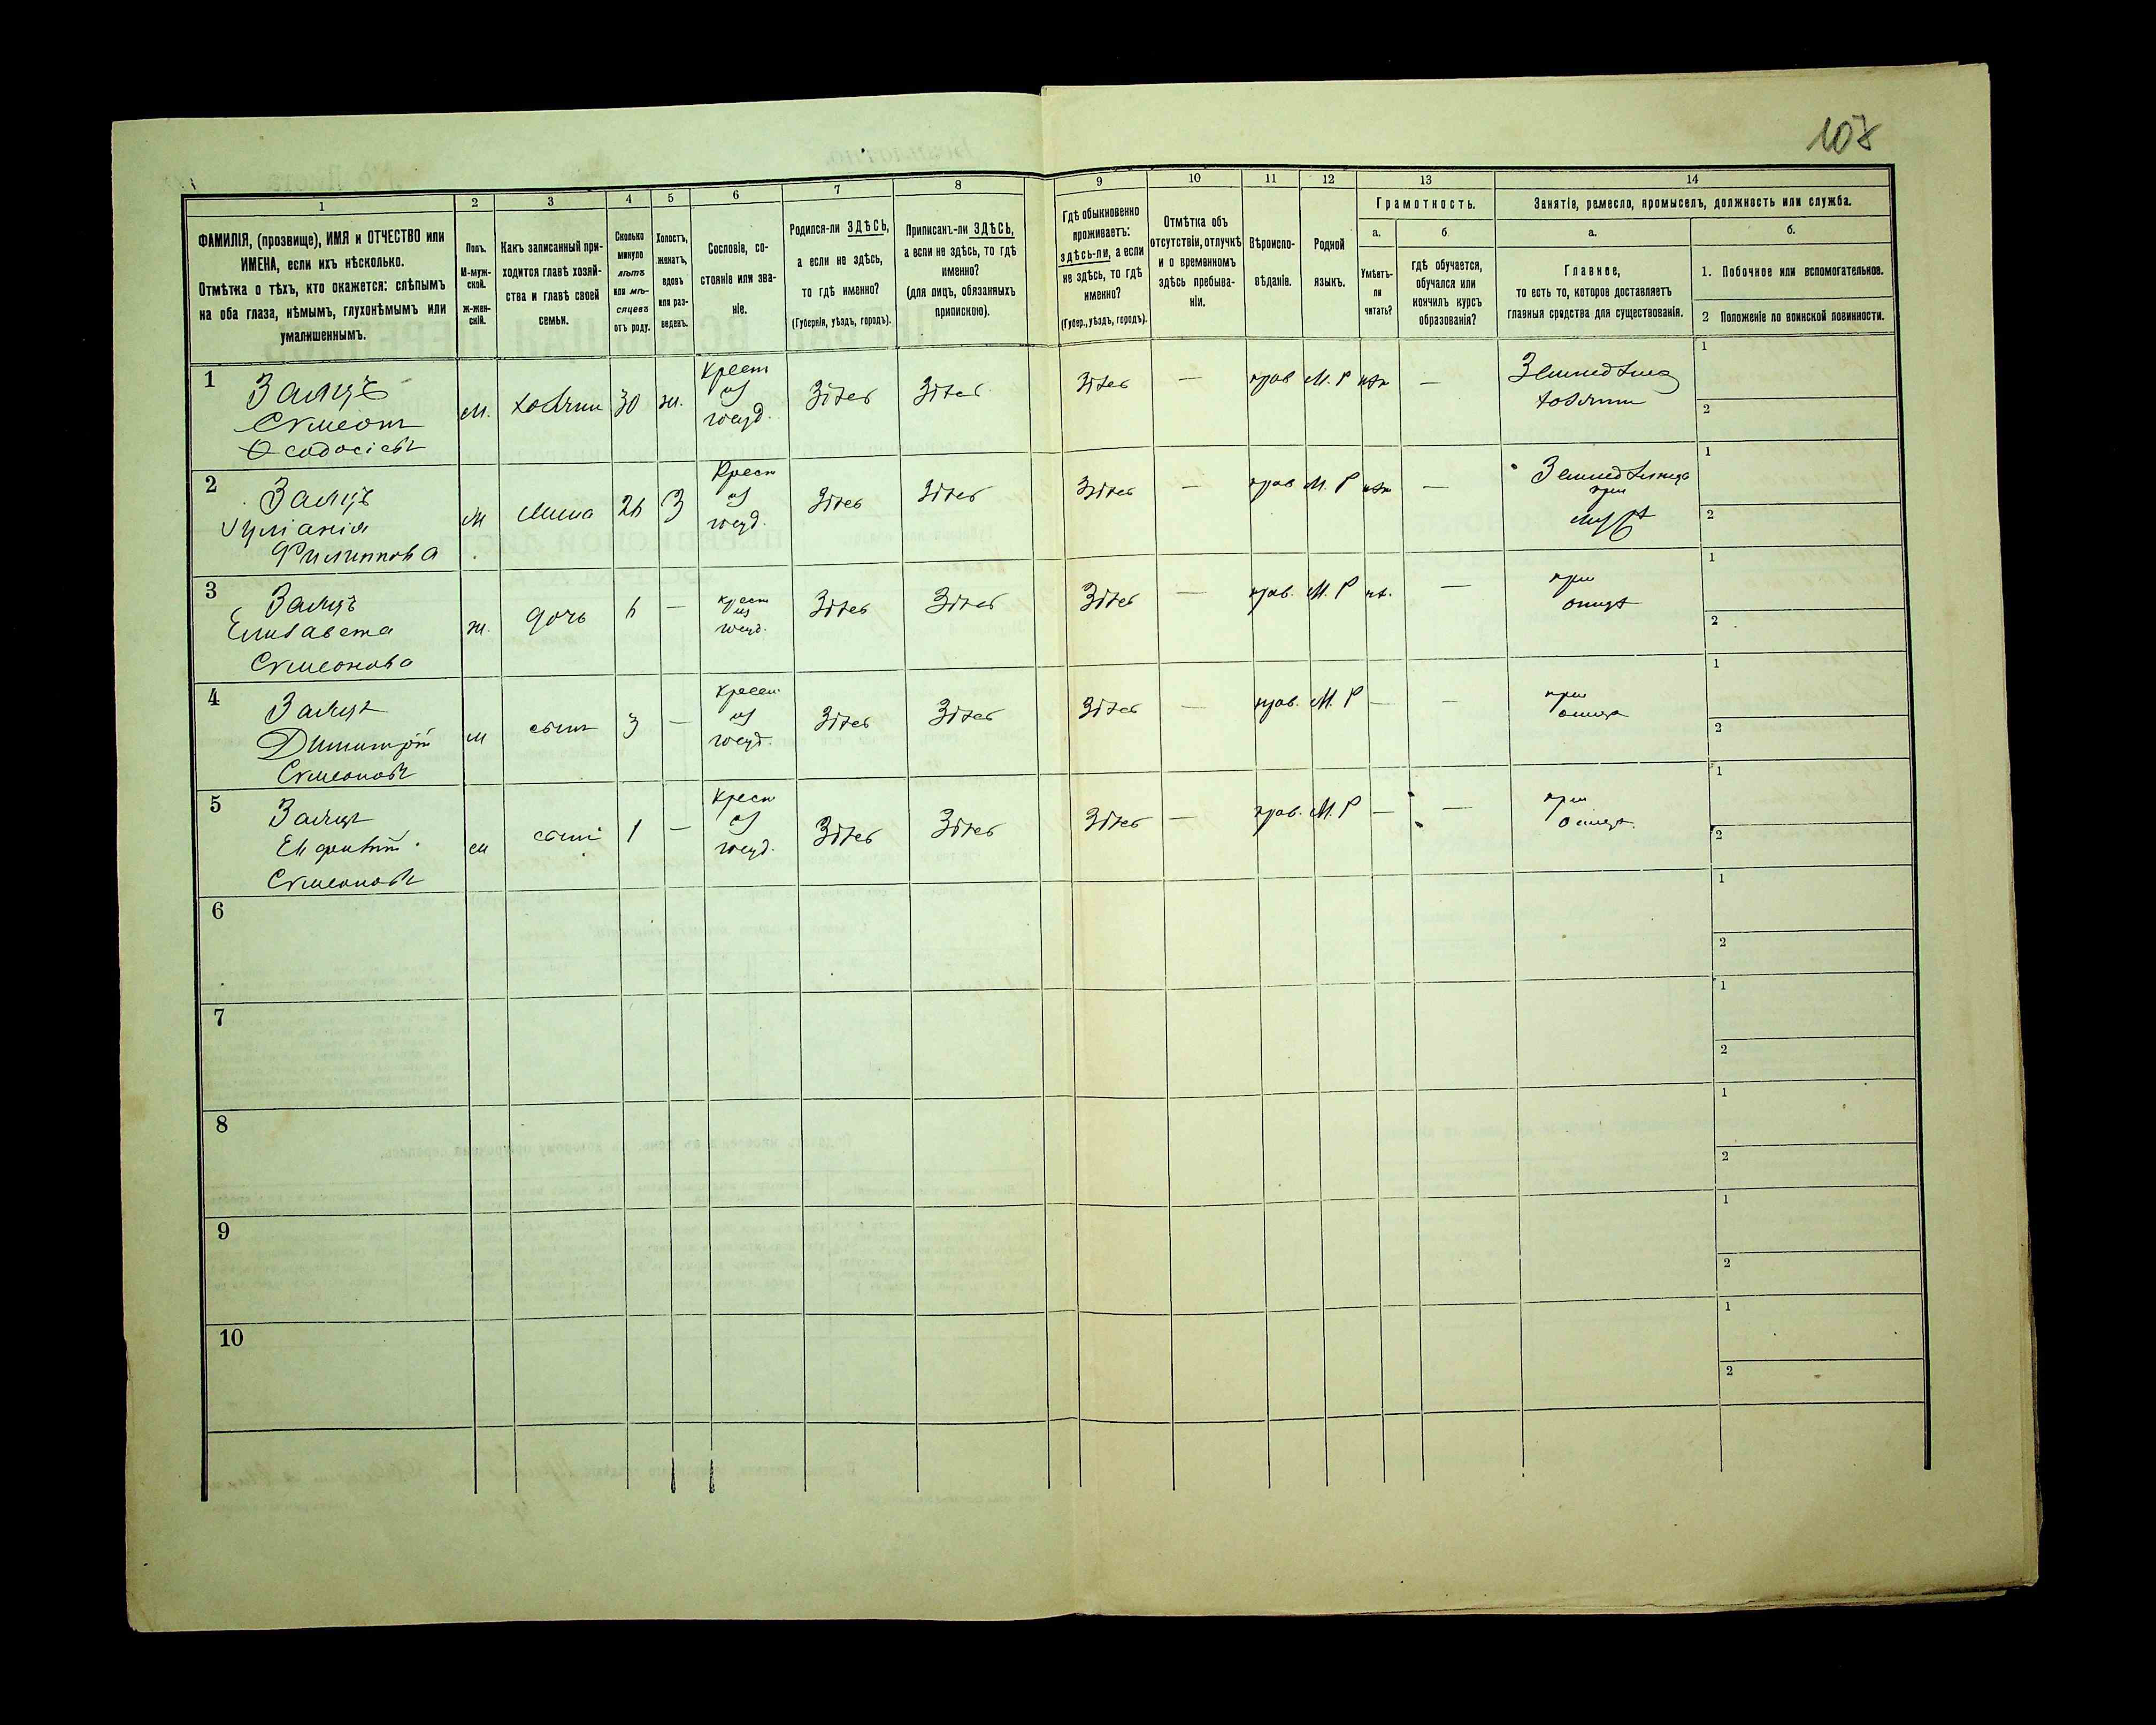 108
1 2 3 4 5 6 7 8 9 10 11 12 13 14
ФАМИЛІЯ, (прозвище), ИМЯ и ОТЧЕСТВО или
ИМЕНА, если ихъ нѣсколько.
Отмѣтка о тѣхъ, кто окажется: слѣпымъ
на оба глаза, нѣмымъ, глухонѣмымъ или
умалишеннымъ.
Полъ.
М-муж-
ской.
ж-жен-
скій.
Какъ записанный при-
ходится главѣ хозяй-
ства и главѣ своей
семьи.
Сколько
минуло
лѣтъ
или мѣ-
сяцевъ
отъ роду.
Холостъ,
женатъ,
вдовъ
или раз-
веденъ.
Сословіе, со-
стояніе или зва-
ніе.
Родился-ли ЗДѢСЬ,
а если не здѣсь,
то гдѣ именно?
(Губернія, уѣздъ, городъ).
Приписанъ-ли ЗДѢСЬ,
а если не здѣсь, то гдѣ
именно?
(для лицъ, обязанныхъ
припискою).
Гдѣ обыкновенно
проживаетъ:
здѣсь-ли, а если
не здѣсь, то гдѣ
именно?
(Губер., уѣздъ, городъ).
Отмѣтка объ
отсутствіи, отлучкѣ
и о временномъ
здѣсь пребыва-
ніи.
Вѣроиспо-
вѣданіе.
Родной
языкъ.
Грамотность.
а.
Умѣетъ-
ли
читать?
б.
гдѣ обучается,
обучался или
кончилъ курсъ
образованія?
Занятіе, ремесло, промыселъ, должность или служба.
а.
Главное,
то есть то, которое доставляетъ
главныя средства для существованія.
б.
1. Побочное или вспомогательное.
2 Положеніе по воинской повинности.
1
Заяцъ
Симеонъ
Ѳеодосіевъ
м. хозяинъ 30 ж.
крест
из
госуд.
Здѣсь Здѣсь Здѣсь — прав М. Р нѣт —
хозяинъ
1
2
2
Заяцъ
Филиппова
жена 26 З
Крест
из
госуд.
Здѣсь Здѣсь Здѣсь — прав М. Р нѣт —
при
мужѣ
1
2
3
Заяцъ
Елизавета
Симеонова
ж. дочь 6 —
крест
из
госуд.
Здѣсь Здѣсь Здѣсь — прав. М. Р нѣ. —
при
отцѣ
1
2
4
Заяцъ
Димитрій
Симеоновъ
м сынъ 3 —
крест
из
госуд.
Здѣсь Здѣсь Здѣсь — прав. М. Р — —
при
отцѣ
1
2
5
Заяцъ
Симеоновъ
м сынъ 1 —
крест
из
госуд.
Здѣсь Здѣсь Здѣсь — прав. М. Р — —
при
отцѣ.
1
2
6
1
2
7
1
2
8
1
2
9
1
2
10
1
2